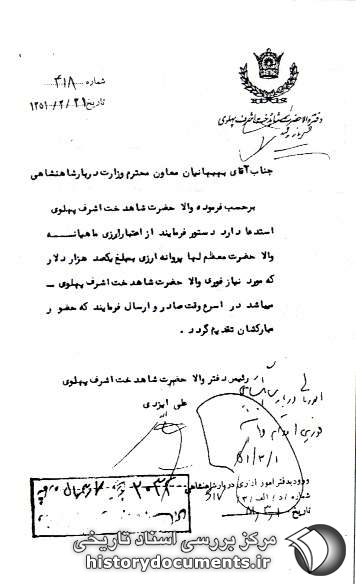 شماره ۴۱۸
تاریخ ۱۳۵۱/۲/۳۱
دفتر والاحضرت شاهدخت اشرف پهلوی
جناب آقای بهبهانیان معاون محترم وزارت دربار شاهنشاهی
برحسب فرموده والا حضرت شاهدخت اشرف پهلوی
استدعا دارد دستور فرمایند از اعتبار ارزی ماهیانه
والا حضرت معظم لها پروانه ارزی بمبلغ یکصد هزار دلار
که مورد نیاز فوری والا حضرت شاهدخت اشرف پهلوی
میباشد در اسرع وقت صادر و ارسال فرمایند که حضور
مبارکشان تقدیم گردد .
رئیس دفتر والا حضرت شاهدخت اشرف پهلوی
علی ایزدی
۵۱/۳/۱
ورود بدفتر امور اداری دربار شاهنشاهی
شماره
تاریخ
۲۰۳۸
مرکز بررسی اسناد تاریخی
historydocuments.ir